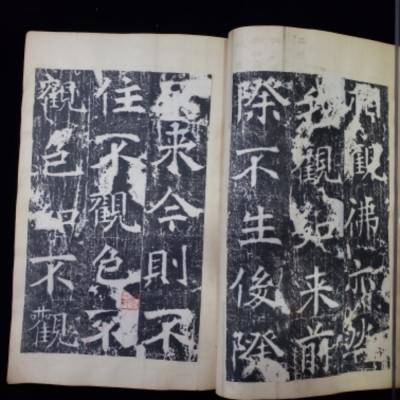 觀佛亦然
我觀如来前
際不生後際
来今則不
住不觀色不
觀色如不觀